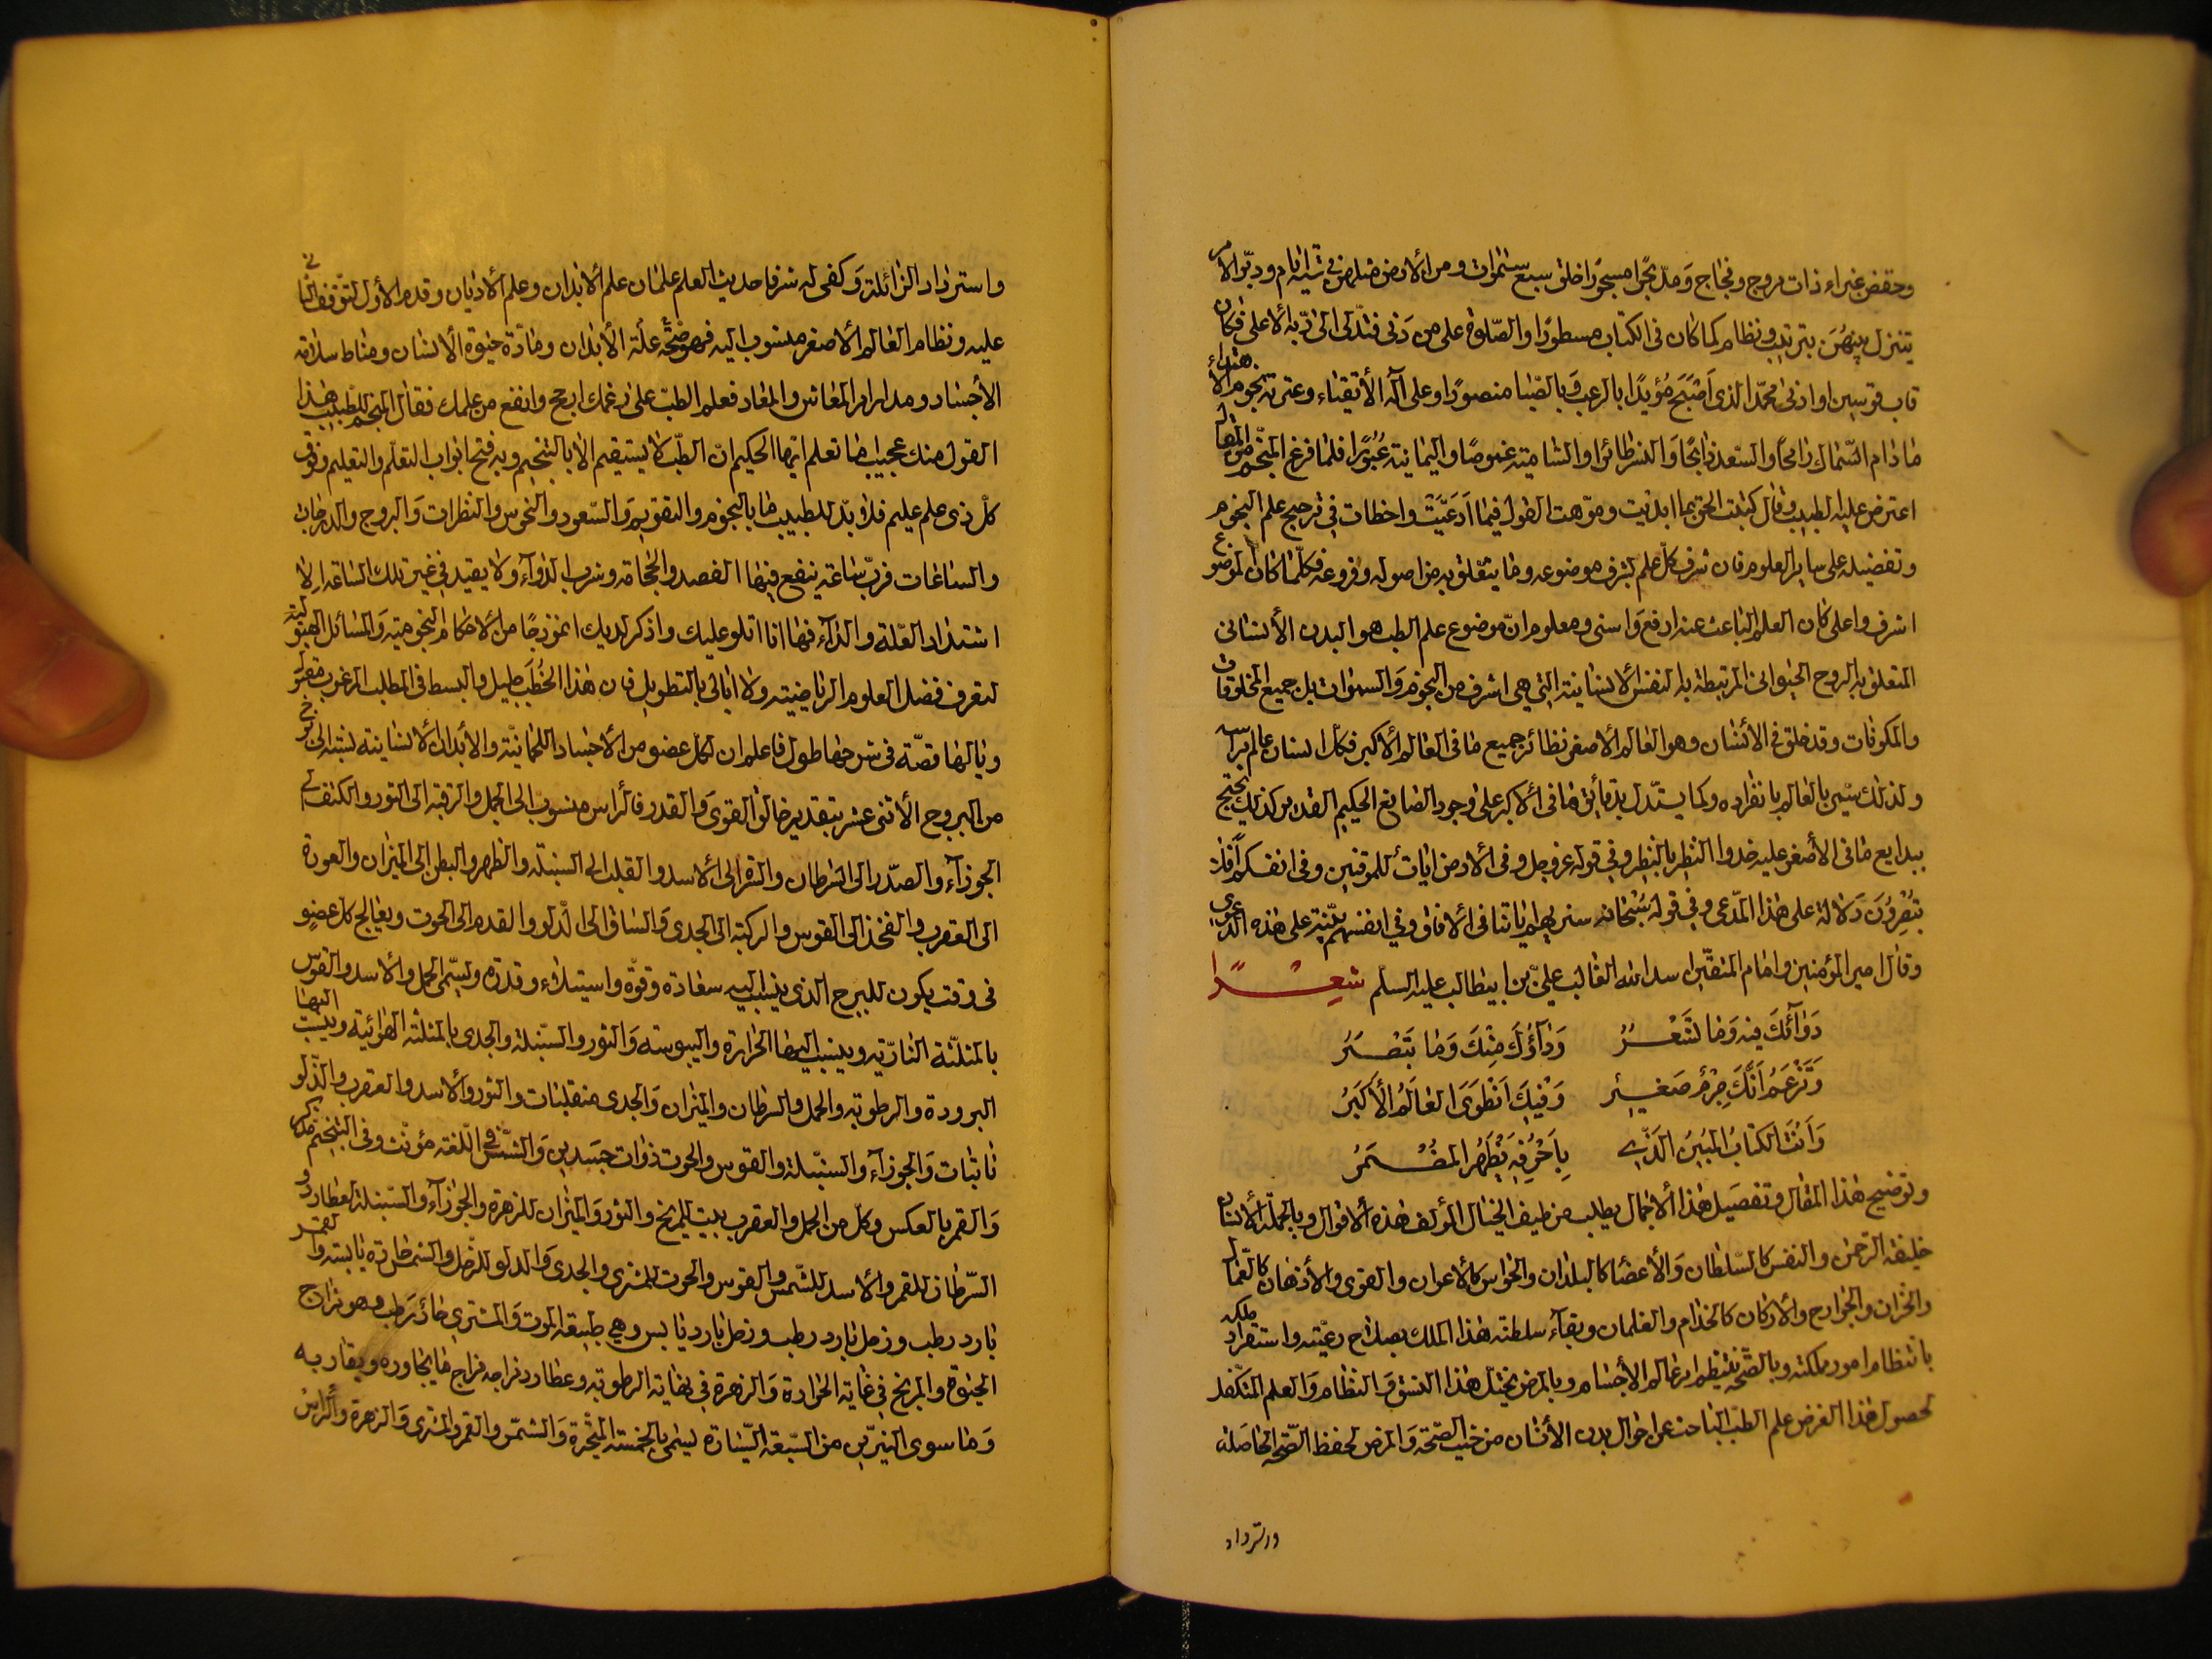 وخفض غبراء ذات مروج وفجاج ومد بحرا مسجورا خلق سبع سموات ومن الارض مثلهن في ستة ايام ودبر الامر
يتنزل بينهن بترتيب ونظام كما كان في الكتاب مسطورا والصلوة على من دنى فتدلى الى ربه الاعلى فكان
قاب قوسين او ادنى محمد الذي اصبح مؤيدا بالرعب وبالصبا منصورا وعلى آله الأتقياء وعترته نجوم الاهتداء
ما دام السماك رامحا والسعد ذابحا والنسر طائرا والشامية غموصا واليمانية عبورا فلما فرغ المنجم من المقال
اعترض عليه الطبيب وقال كتمت الحق بما ابديت وموهت القول فيما ادعيت واخطات في ترجيح علم النجوم
وتفضيله على ساير العلوم فان شرف كل علم بشرف موضوعه وما يتعلق به من اصوله وفروعه فكلما كان الموضوع
اشرف واعلى كان العلم الباعث عنه ارفع واسنى ومعلوم ان موضوع علم الطب هو البدن الأنساني
المتعلق به الروح الحيواني المرتبطة به النفس الانسانية التي هي اشرف من النجوم والسموات بل جميع المخلوقات
والمكونات وقد خلق في الأنسان وهو العالم الأصغر نظائر جميع ما في العالم الأكبر فكل انسان عالم براسه
ولذلك سمي بالعالم بانفراده وكما يستدل بدقائق ما في الأكبر على وجود الصانع الحكيم القدير كذلك يحتج
ببدايع ما في الأصغر عليه خذوا النظر بالنظر وفي قوله عز وجل وفي الارض ايات للموقنين وفي انفسكم أفلا
تبصرون دلالة على هذا المدعى وفي قوله سبحانه سنريهم اياتنا في الآفاق وفي انفسهم بينة على هذه الدعوى
وقال امير المؤمنين وامام المتقين اسد الله الغالب علي بن ابيطالب عليه السلم شعرا
دوائك فيك وما تشعر وداؤك منك وما تبصر
وتزعم انك جرم صغير وفيك انطوى العالم الأكبر
وانت الكتاب المبين الذي باحرفه يظهر المضمر
وتوضيح هذا المقال وتفصيل هذا الأجمال يطلب من طيف الخيال المؤلف هذه الأقوال وبالجملة الأنسان
خليفة الرحمن والنفس كالسلطان والأعضا كالبلدان والحواس كالأعوان والقوى والأذهان كالعمال
والخزان والجوارح والاركان كالخدام والغلمان وبقاء سلطنة هذا الملك بصلاح رعيته واستقرار ملكه
بانتظام امور مملكته وبالصحة ينتظم امر عالم الأجسام وبالمرض يختل هذا النسق والنظام والعلم المتكفل
لحصول هذا الغرض علم الطب الباحث عن احوال بدن الأنسان من حيث الصحة والمرض لحفظ الصحة الحاصلة
واسترداد
واسترداد الزائلة وكفى له شرفا حديث العلم علمان علم الأبدان وعلم الأديان وقدم الأول لتوقف الثاني
عليه ونظام العالم الأصغر منسوب اليه فهو صحة علة الأبدان ومادة حيوة الأنسان ومناط سلامة
الأجساد ومدار امر المعاش والمعاد فعلم الطب على زعمك ارجح وانفع من علمك فقال المنجم للطبيب هذا
القول منك عجيب اما تعلم ايها الحكيم ان الطب لا يستقيم الا بالتنجيم وبه فتح ابواب التعلم والتعليم وفوق
كل ذي علم عليم فلا بد للطبيب ما بالنجوم والتقويم والسعود والنحوس والنظرات والبروج والدرجات
والساعات فرب ساعة ينفع فيها الفصد والحجامة وشرب الدواء ولا يفيد في غير تلك الساعة الا
اشتداد العلة والداء فها انا اتلو عليك واذكر لديك انموذجا من الأحكام النجومية والمسائل الهيوية
لتعرف فضل العلوم الرياضية ولا ابالي بالتطويل فان هذا الخطب طويل والبسط في المطلب المرغوب مقبول
ويا لها قصة في شرحها طول فاعلم ان لكل عضو من الأجساد اللحمانية والأبدان الانسانية نسبة الى برج
من البروج الأثنى عشر بتقدير خالق القوى والقدر فالراس منسوب الى الحمل والرقبة الى الثور والكتف الى
الجوزاء والصدر الى السرطان والسر الى الأسد والقلب الى السنبلة والظهر والبطن الى الميزان والعورة
الى العقرب والفخذ الى القوس والركبة الى الجدي والساق الى الدلو والقدم الى الحوت ويعالج كل عضو
في وقت يكون للبرج الذي ينسب اليه سعادة وقوة واستيلاء وقدرة ويسمى الحمل والاسد والقوس
بالمثلثة النارية وينسب اليها الحرارة واليبوسة والثور والسنبلة والجدي بالمثلثة الهوائية وينسب اليها
البرودة والرطوبة والحمل والسرطان والميزان والجدي منقلبات والثور والأسد والعقرب والدلو
ثابتات والجوزاء والسنبلة والقوس والحوت ذوات جسدين والشمس في اللغة مؤنث وفي التنجيم مذكر
والقمر بالعكس وكل من الحمل والعقرب بيت للمريخ والثور والميزان للزهرة والجوزاء والسنبلة لعطارد و
السرطان للقمر والأسد للشمس والقوس والحوت للمشتري والجدي والدلو للزحل والشمس حارة يابسة والقمر
بارد رطب وزحل بارد رطب وزحل بارد يابس وهي طبيعة الموت والمشتري حار رطب وهو مزاج
الحيوة والمريخ في غاية الحرارة والزهرة في نهاية الرطوبة وعطارد مزاجه مزاج ما يجاوره ويقاربه
وما سوى النيرين من السبعة السيارة يسمى بالخمسة المتحيرة والشمس والقمر والمشتري والزهرة والراس